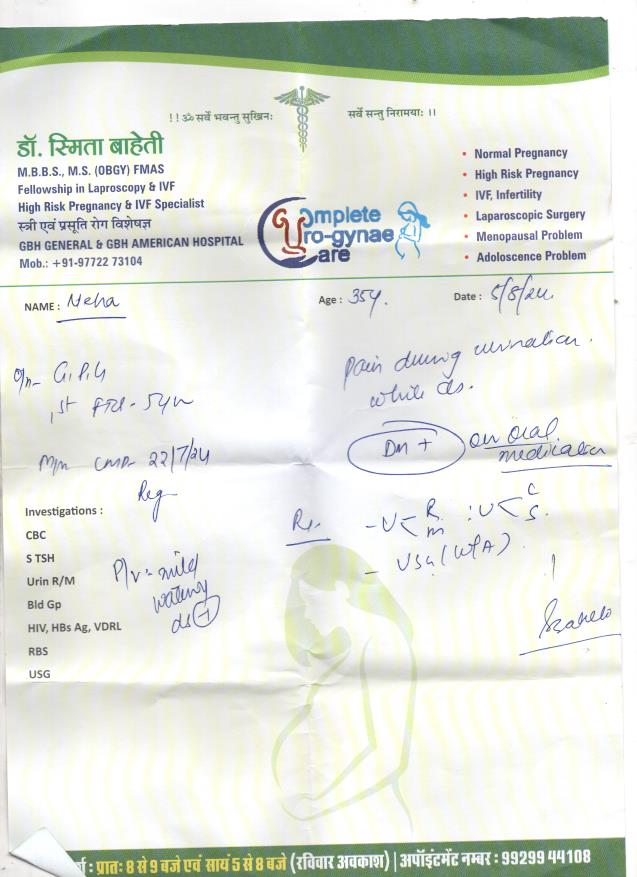 !! ॐ सर्वे भवन्तु सुखिनः सर्वे सन्तु निरामयाः ।।
डॉ. स्मिता बाहेती
M.B.B.S., M.S. (OBGY) FMAS
Fellowship in Laproscopy & IVF
High Risk Pregnancy & IVF Specialist
स्त्री एवं प्रसूति रोग विशेषज्ञ
GBH GENERAL & GBH AMERICAN HOSPITAL
Mob.: +91-97722 73104
Complete
Uro-gynae
Care
• Normal Pregnancy
• High Risk Pregnancy
• IVF, Infertility
• Laparoscopic Surgery
• Menopausal Problem
• Adoloscence Problem
NAME : Neha Age : 35y. Date : 5/8/24.
pain during urination.
while ds.
DM + on oral
medication
22/7/24
Reg
Rx.
- U < R M : U < C S.
- USG (W/A)
P/v - mild
watery
ds +
Investigations :
CBC
S TSH
Urin R/M
Bld Gp
HIV, HBs Ag, VDRL
RBS
USG
: प्रातः 8 से 9 बजे एवं सायं 5 से 8 बजे (रविवार अवकाश) | अपॉइंटमेंट नम्बर : 99299 44108